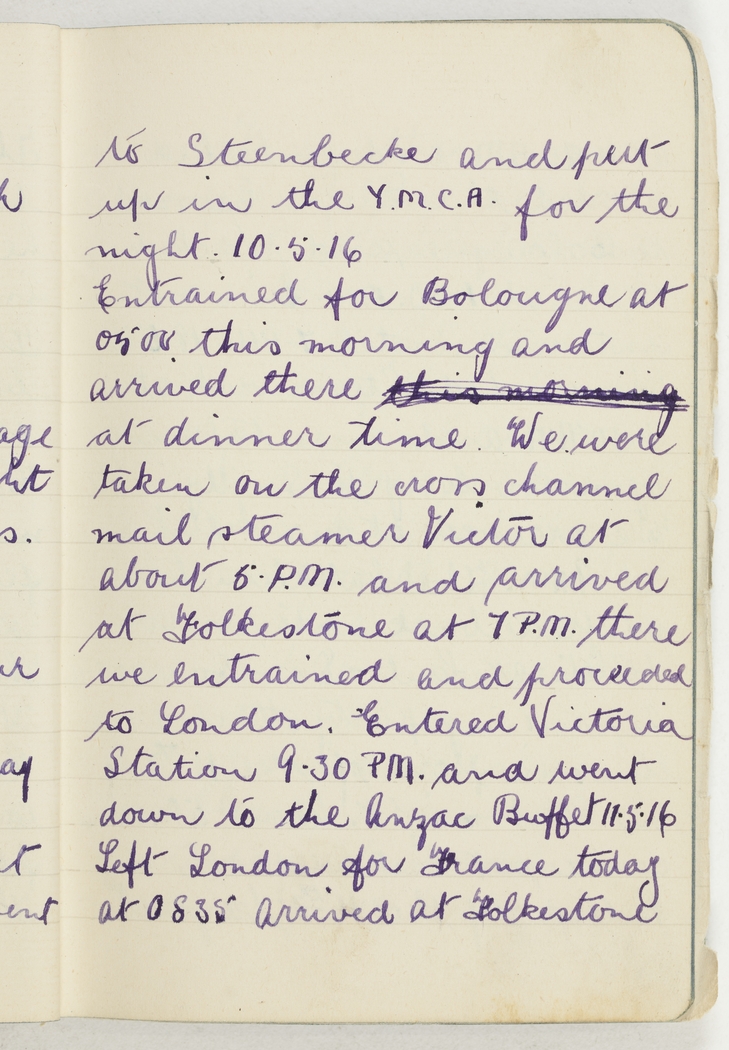 to Steenbecke and put
up in the Y.M.C.A. for the
night. 10.5.16
Entrained for Bolougne at
0500 this morning and
arrived there this morning
at dinner time. We were
taken on the cross channel
mail steamer Victor at
about 5.P.M. and arrived
at Folkestone at 7 P.M. there
we entrained and proceeded
to London. Entered Victoria
Station 9.30 PM. and went
down to the Anzac Buffet 11.5.16
Left London for France today
at 0835 arrived at Folkestone